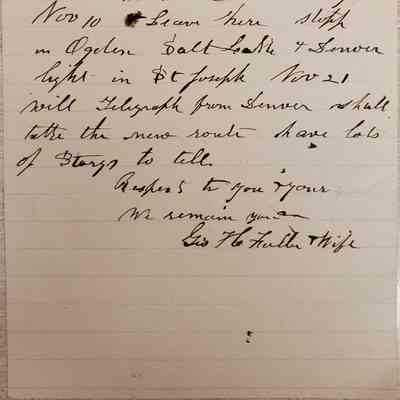 Nov 10 Leave here stopp
in Ogden Salt Lake & Denver
light in St Joseph Nov 21
will Telegraph from Denver shall
take the new route have lots
of Storys to tell.
Respects to you & your
We remain yours
Geo H Fuller & Wife